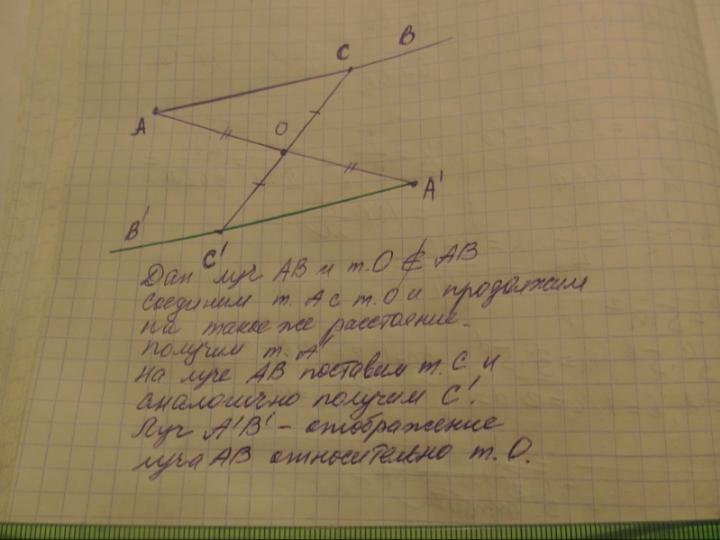 C B
A O
A'
B'
C'
Дан луч АВ и т.О ∉ АВ
Соединим т. А с т. О и продолжим
на такое же расстояние.
получим т. А'
На луче АВ поставим т. С и
аналогично получим С'.
Луч А'В' - отображение
луча АВ относительно т. О.